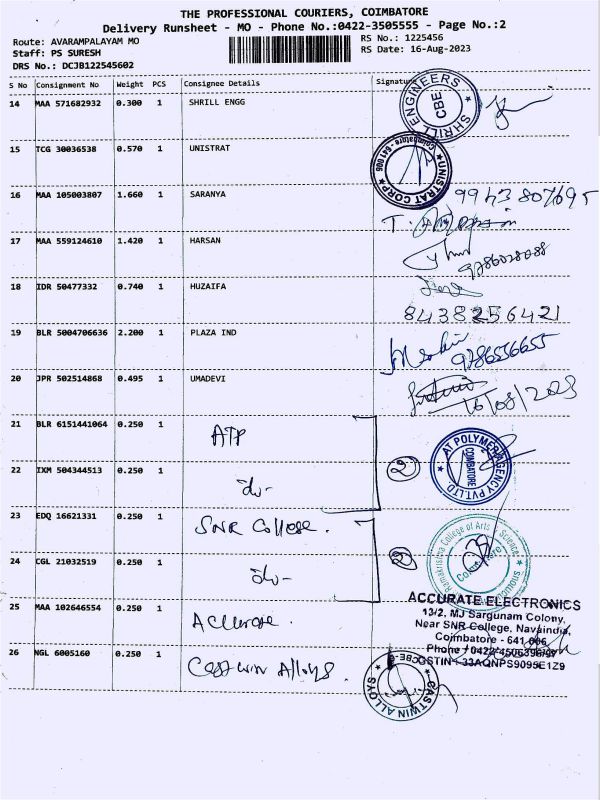 THE PROFESSIONAL COURIERS, COIMBATORE
Delivery Runsheet - MO - Phone No.:0422-3505555 - Page No.:2
Route: AVARAMPALAYAM MO
RS No.: 1225456
Staff: PS SURESH
RS Date: 16-Aug-2023
DRS No.: DCJB122545602
S No Consignment No Weight PCS Consignee Details Signature
14 MAA 571682932 0.300 1 SHRILL ENGG
SHRILL ENGINEERS
CBE
15 TCG 30036538 0.570 1 UNISTRAT
Coimbatore - 641 006
UNISTRAT CORP
16 MAA 105003807 1.660 1 SARANYA
9943807695
17 MAA 559124610 1.420 1 HARSAN
9786028088
18 IDR 50477332 0.740 1 HUZAIFA
8438256421
19 BLR 5004706636 2.200 1 PLAZA IND
9786536655
20 JPR 502514868 0.495 1 UMADEVI
16/08/2023
21 BLR 6151441064 0.250 1 ATP
AT POLYMER AGENCY PVT.LTD
COIMBATORE
22 IXM 504344513 0.250 1 do-
2
23 EDQ 16621331 0.250 1 SNR College.
24 CGL 21032519 0.250 1 do-
2
Ramakrishna College of Arts & Science
Coimbatore
25 MAA 102646554 0.250 1 Accurate.
ACCURATE ELECTRONICS
13/2, MJ Sargunam Colony,
Near SNR College, Navaindia,
Coimbatore - 641 006
26 NGL 6005160 0.250 1 Castwin Alloys.
GSTIN : 33AQNPS9095E1Z9
CASTWIN ALLOYS
CBE-6